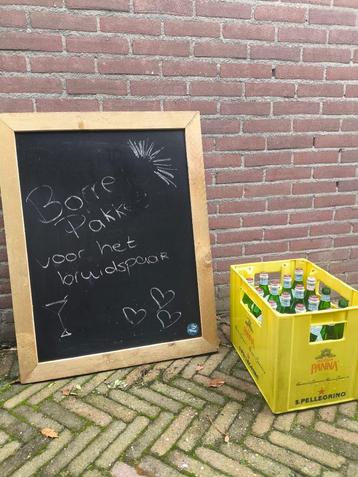 Borre
Pakke
voor het
bruidspaar
PANNA
S.PELLEGRINO